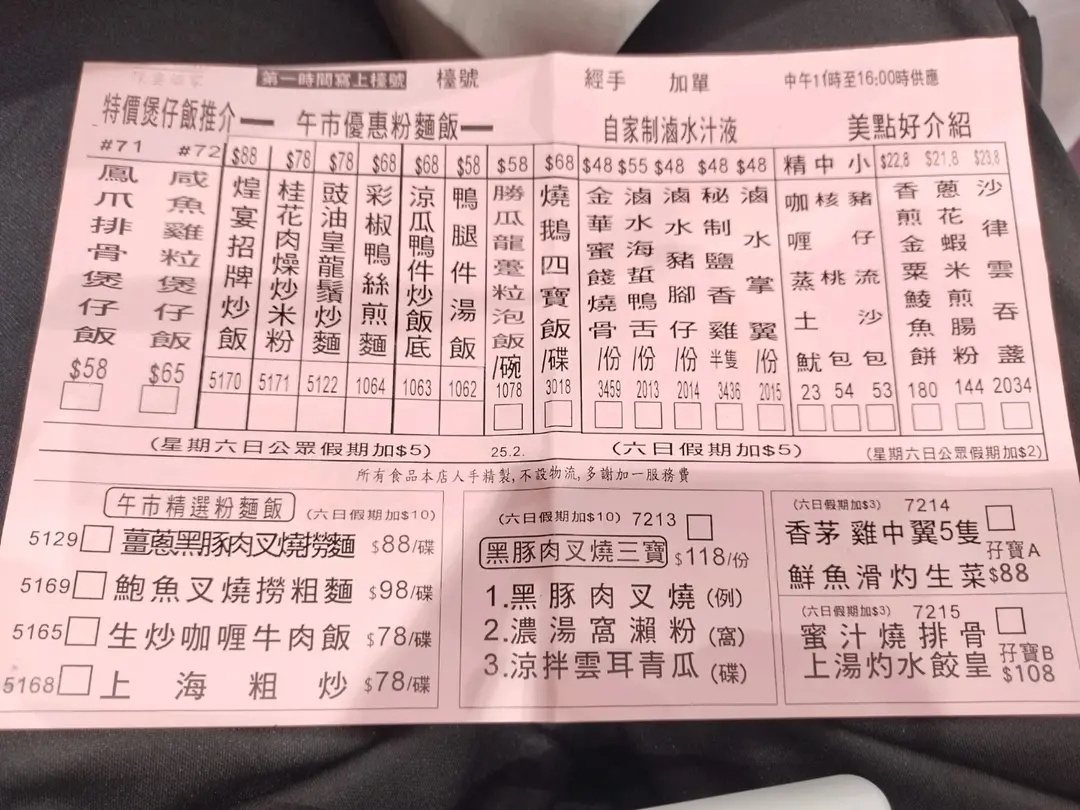 第一時間寫上檯號 檯號 經手 加單 中午11時至16:00時供應
特價煲仔飯推介 午市優惠粉麵飯 自家制滷水汁液 美點好介紹
#71 鳳爪排骨煲仔飯 $58
#72 咸魚雞粒煲仔飯 $65
$88 煌宴招牌炒飯 5170
$78 桂花肉燥炒米粉 5171
$78 豉油皇龍鬚炒麵 5122
$68 彩椒鴨絲煎麵 1064
$68 涼瓜鴨件炒飯底 1063
$58 鴨腿件湯飯 1062
$58 勝瓜龍躉粒泡飯/碗 1078
$68 燒鵝四寶飯/碟 3018
$48 金華蜜餞燒骨/份 3459
$55 滷水海蜇鴨舌/份 2013
$48 滷水豬腳仔/份 2014
$48 秘制鹽香雞半隻 3436
$48 滷水掌翼/份 2015
精 咖喱蒸土魷 23
中 核桃包 54
小 豬仔流沙包 53
$22,8 香煎金粟鯪魚餅 180
$21,8 蔥花蝦米煎腸粉 144
$23,8 沙律雲吞盞 2034
(星期六日公眾假期加$5) 25.2. (六日假期加$5) (星期六日公眾假期加$2)
所有食品本店人手精製,不設物流,多謝加一服務費
午市精選粉麵飯 (六日假期加$10)
5129 薑蔥黑豚肉叉燒撈麵 $88/碟
5169 鮑魚叉燒撈粗麵 $98/碟
5165 生炒咖喱牛肉飯 $78/碟
5168 上海粗炒 $78/碟
(六日假期加$10) 7213
黑豚肉叉燒三寶 $118/份
1.黑豚肉叉燒(例)
2.濃湯窩瀨粉(窩)
3.涼拌雲耳青瓜(碟)
(六日假期加$3) 7214
香茅雞中翼5隻 孖寶A
鮮魚滑灼生菜 $88
(六日假期加$3) 7215
蜜汁燒排骨 孖寶B
上湯灼水餃皇 $108